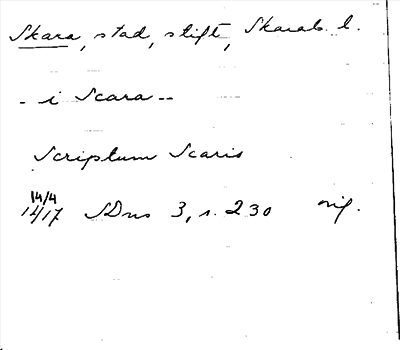 Skara, stad, stift, Skarab. l.
- i Scara --
Scriptum Scaris
14/4
1417 SDns 3, s. 230 orig.